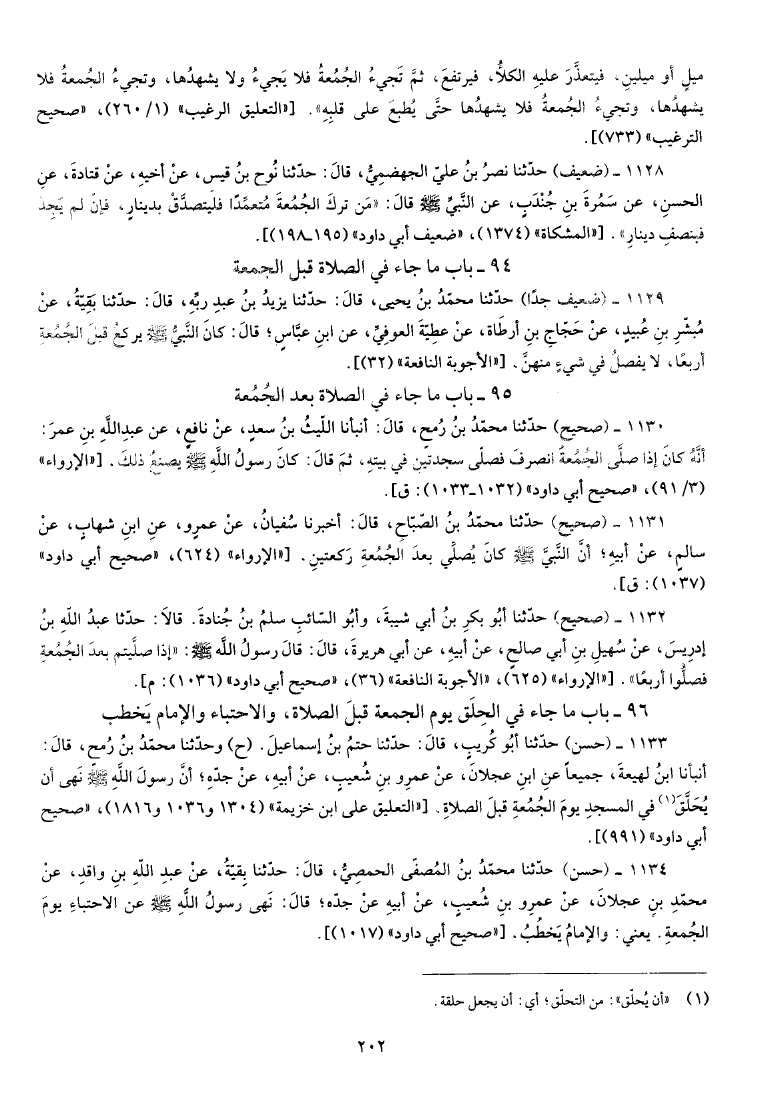 ميلٍ أو ميلينِ، فيتعذَّرَ عليهِ الكلأُ، فيرتفعَ، ثمَّ تَجيءُ الجُمُعةُ فلا يَجيءُ ولا يشهدُها، وتجيءُ الجمعةُ فلا
يشهدُها، وتجيءُ الجُمعةُ فلا يشهدُها حتَّى يُطبعَ على قلبِهِ». [«التعليق الرغيب» (١/ ٢٦٠)، «صحيح
الترغيب» (٧٣٣)].
١١٢٨ ـ (ضعيف) حدّثنا نصرُ بنُ عليّ الجهضميُّ، قالَ: حدّثنا نُوح بنُ قيس، عنْ أخيهِ، عنْ قتادةَ، عنِ
الحسنِ، عن سَمُرةَ بنِ جُنْدَبٍ، عن النَّبيِّ ﷺ قالَ: «مَن تركَ الجُمُعةَ مُتعمِّدًا فليتصدَّقْ بدينارٍ، فإنْ لم يَجِدْ
فبنصفِ دينارٍ». [«المشكاة» (١٣٧٤)، «ضعيف أبي داود» (١٩٥ـ١٩٨)].
٩٤ ـ باب ما جاء في الصلاة قبل الجمعة
١١٢٩ ـ (ضعيف جدًا) حدّثنا محمّدُ بنُ يحيى، قالَ: حدّثنا يزيدُ بنُ عبدِ ربِّه، قالَ: حدّثنا بَقِيَّةُ، عنْ
مُبشّرِ بنِ عُبيدٍ، عنْ حَجّاجِ بنِ أرطَاة، عنْ عطيّةَ العوفيِّ، عن ابنِ عبَّاسٍ؛ قالَ: كانَ النَّبيُّ ﷺ يركعُ قبلَ الجُمُعةِ
أربعًا، لا يفصلُ في شيءٍ منهنَّ. [«الأجوبة النافعة» (٣٢)].
٩٥ ـ باب ما جاء في الصلاة بعد الجُمُعة
١١٣٠ ـ (صحيح) حدّثنا محمّدُ بنُ رُمحٍ، قالَ: أنبأنا اللّيثُ بنُ سعدٍ، عنْ نافعٍ، عن عبدِاللَّهِ بنِ عمرَ:
أنَّهُ كانَ إذا صلَّى الجُمُعةَ انصرفَ فصلّى سجدتينِ في بيتِهِ، ثمّ قالَ: كانَ رسولُ اللَّهِ ﷺ يصنعُ ذلكَ. [«الإرواء»
(٣/ ٩١)، «صحيح أبي داود» (١٠٣٢ـ١٠٣٣): ق].
١١٣١ ـ (صحيح) حدّثنا محمّدُ بنُ الصّبّاحِ، قالَ: أخبرنا سُفيانُ، عنْ عمرٍو، عنِ ابنِ شهابٍ، عنْ
سالمٍ، عنْ أبيهِ؛ أنَّ النَّبيَّ ﷺ كانَ يُصلِّي بعدَ الجُمُعةِ رَكعتينِ. [«الإرواء» (٦٢٤)، «صحيح أبي داود»
(١٠٣٧): ق].
١١٣٢ ـ (صحيح) حدّثنا أبُو بكرِ بنُ أبي شيبةَ، وأبُو السّائبِ سلمُ بنُ جُنادةَ. قالاَ: حدّثا عبدُ اللّهِ بنُ
إدرِيسَ، عنْ سُهيلِ بنِ أبي صالحٍ، عنْ أبيهِ، عن أبي هريرةَ، قالَ: قالَ رسولُ اللَّه ﷺ: «إذا صلَّيتم بعدَ الجُمُعةِ
فصلُّوا أربعًا». [«الإرواء» (٦٢٥)، «الأجوبة النافعة» (٣٦)، «صحيح أبي داود» (١٠٣٦): م].
٩٦ ـ باب ما جاء في الحِلَق يوم الجمعة قبلَ الصلاة، والاحتباء والإمام يَخطب
١١٣٣ ـ (حسن) حدّثنا أبُو كُريبٍ، قالَ: حدّثنا حتمُ بنُ إسماعيلَ. (ح) وحدّثنا محمّدُ بنُ رُمحٍ، قالَ:
أنبأنا ابنُ لهيعةَ، جميعاً عنِ ابنِ عجلانَ، عنْ عمرِو بنِ شُعيبٍ، عنْ أبيهِ، عنْ جدِّهِ؛ أنَّ رسولَ اللَّهِ ﷺ نَهى أن
يُحَلَّقَ(١) في المسجدِ يومَ الجُمُعةِ قبلَ الصلاةِ. [«التعليق على ابن خزيمة» (١٣٠٤ و١٠٣٦ و١٨١٦)، «صحيح
أبي داود» (٩٩١)].
١١٣٤ ـ (حسن) حدّثنا محمّدُ بنُ المُصفّى الحمصِيُّ، قالَ: حدّثنا بقيّةُ، عنْ عبدِ اللّهِ بنِ واقدٍ، عنْ
محمّدِ بنِ عجلانَ، عنْ عمرِو بنِ شُعيبٍ، عنْ أبيهِ عنْ جدّه؛ قالَ: نَهى رسولُ اللَّهِ ﷺ عن الاحتباءِ يومَ
الجُمعةِ. يعني: والإمامُ يَخطُبُ. [«صحيح أبي داود» (١٠١٧)].
(١) «أن يُحلّق»: من التحلّق؛ أي: أن يجعل حلقة.
٢٠٢